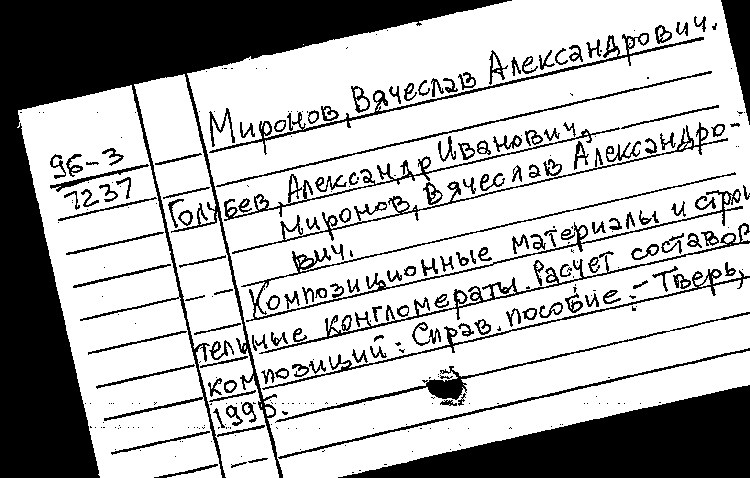 Миронов, Вячеслав Александрович.
96-3
7237
Голубев, Александр Иванович,
Миронов, Вячеслав Александро-
вич.
Композиционные материалы и строи
тельные конгломераты. Расчет составов
композиций: Справ. пособие. - Тверь,
1995.